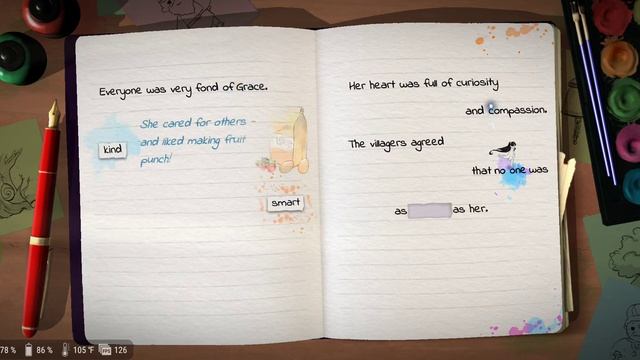 Everyone was very fond of Grace.
She cared for others -
and liked making fruit
punch!
kind
smart
Her heart was full of curiosity
and compassion.
The villagers agreed
that no one was
as as her.
78 % 86 % 105 °F FPS 126